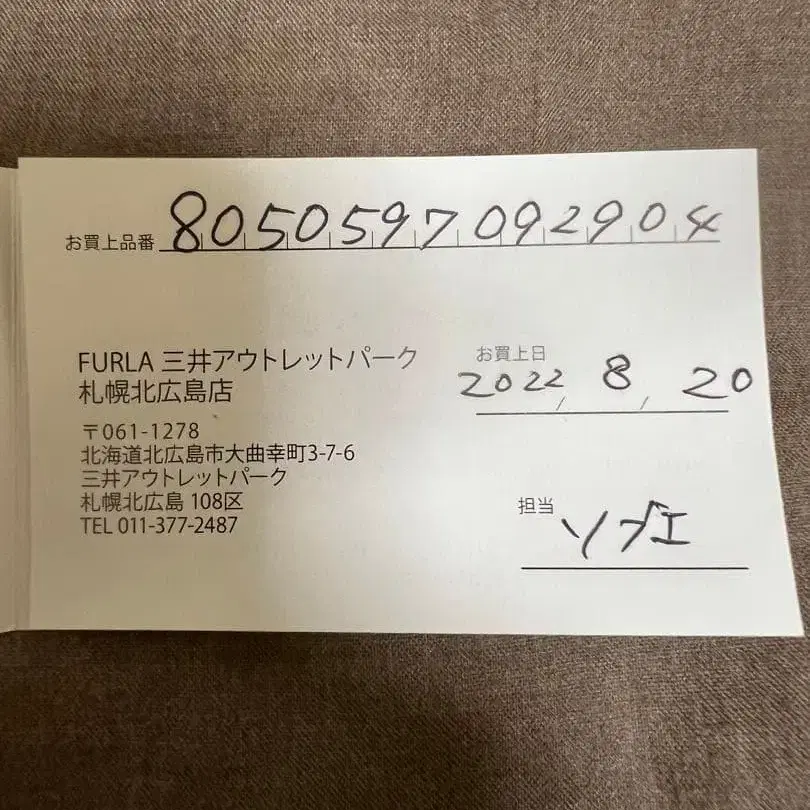 お買上品番 8050597092904
FURLA 三井アウトレットパーク
札幌北広島店
〒061-1278
北海道北広島市大曲幸町3-7-6
三井アウトレットパーク
札幌北広島 108区
TEL 011-377-2487
お買上日
2022 / 8 / 20
担当
ソブエ